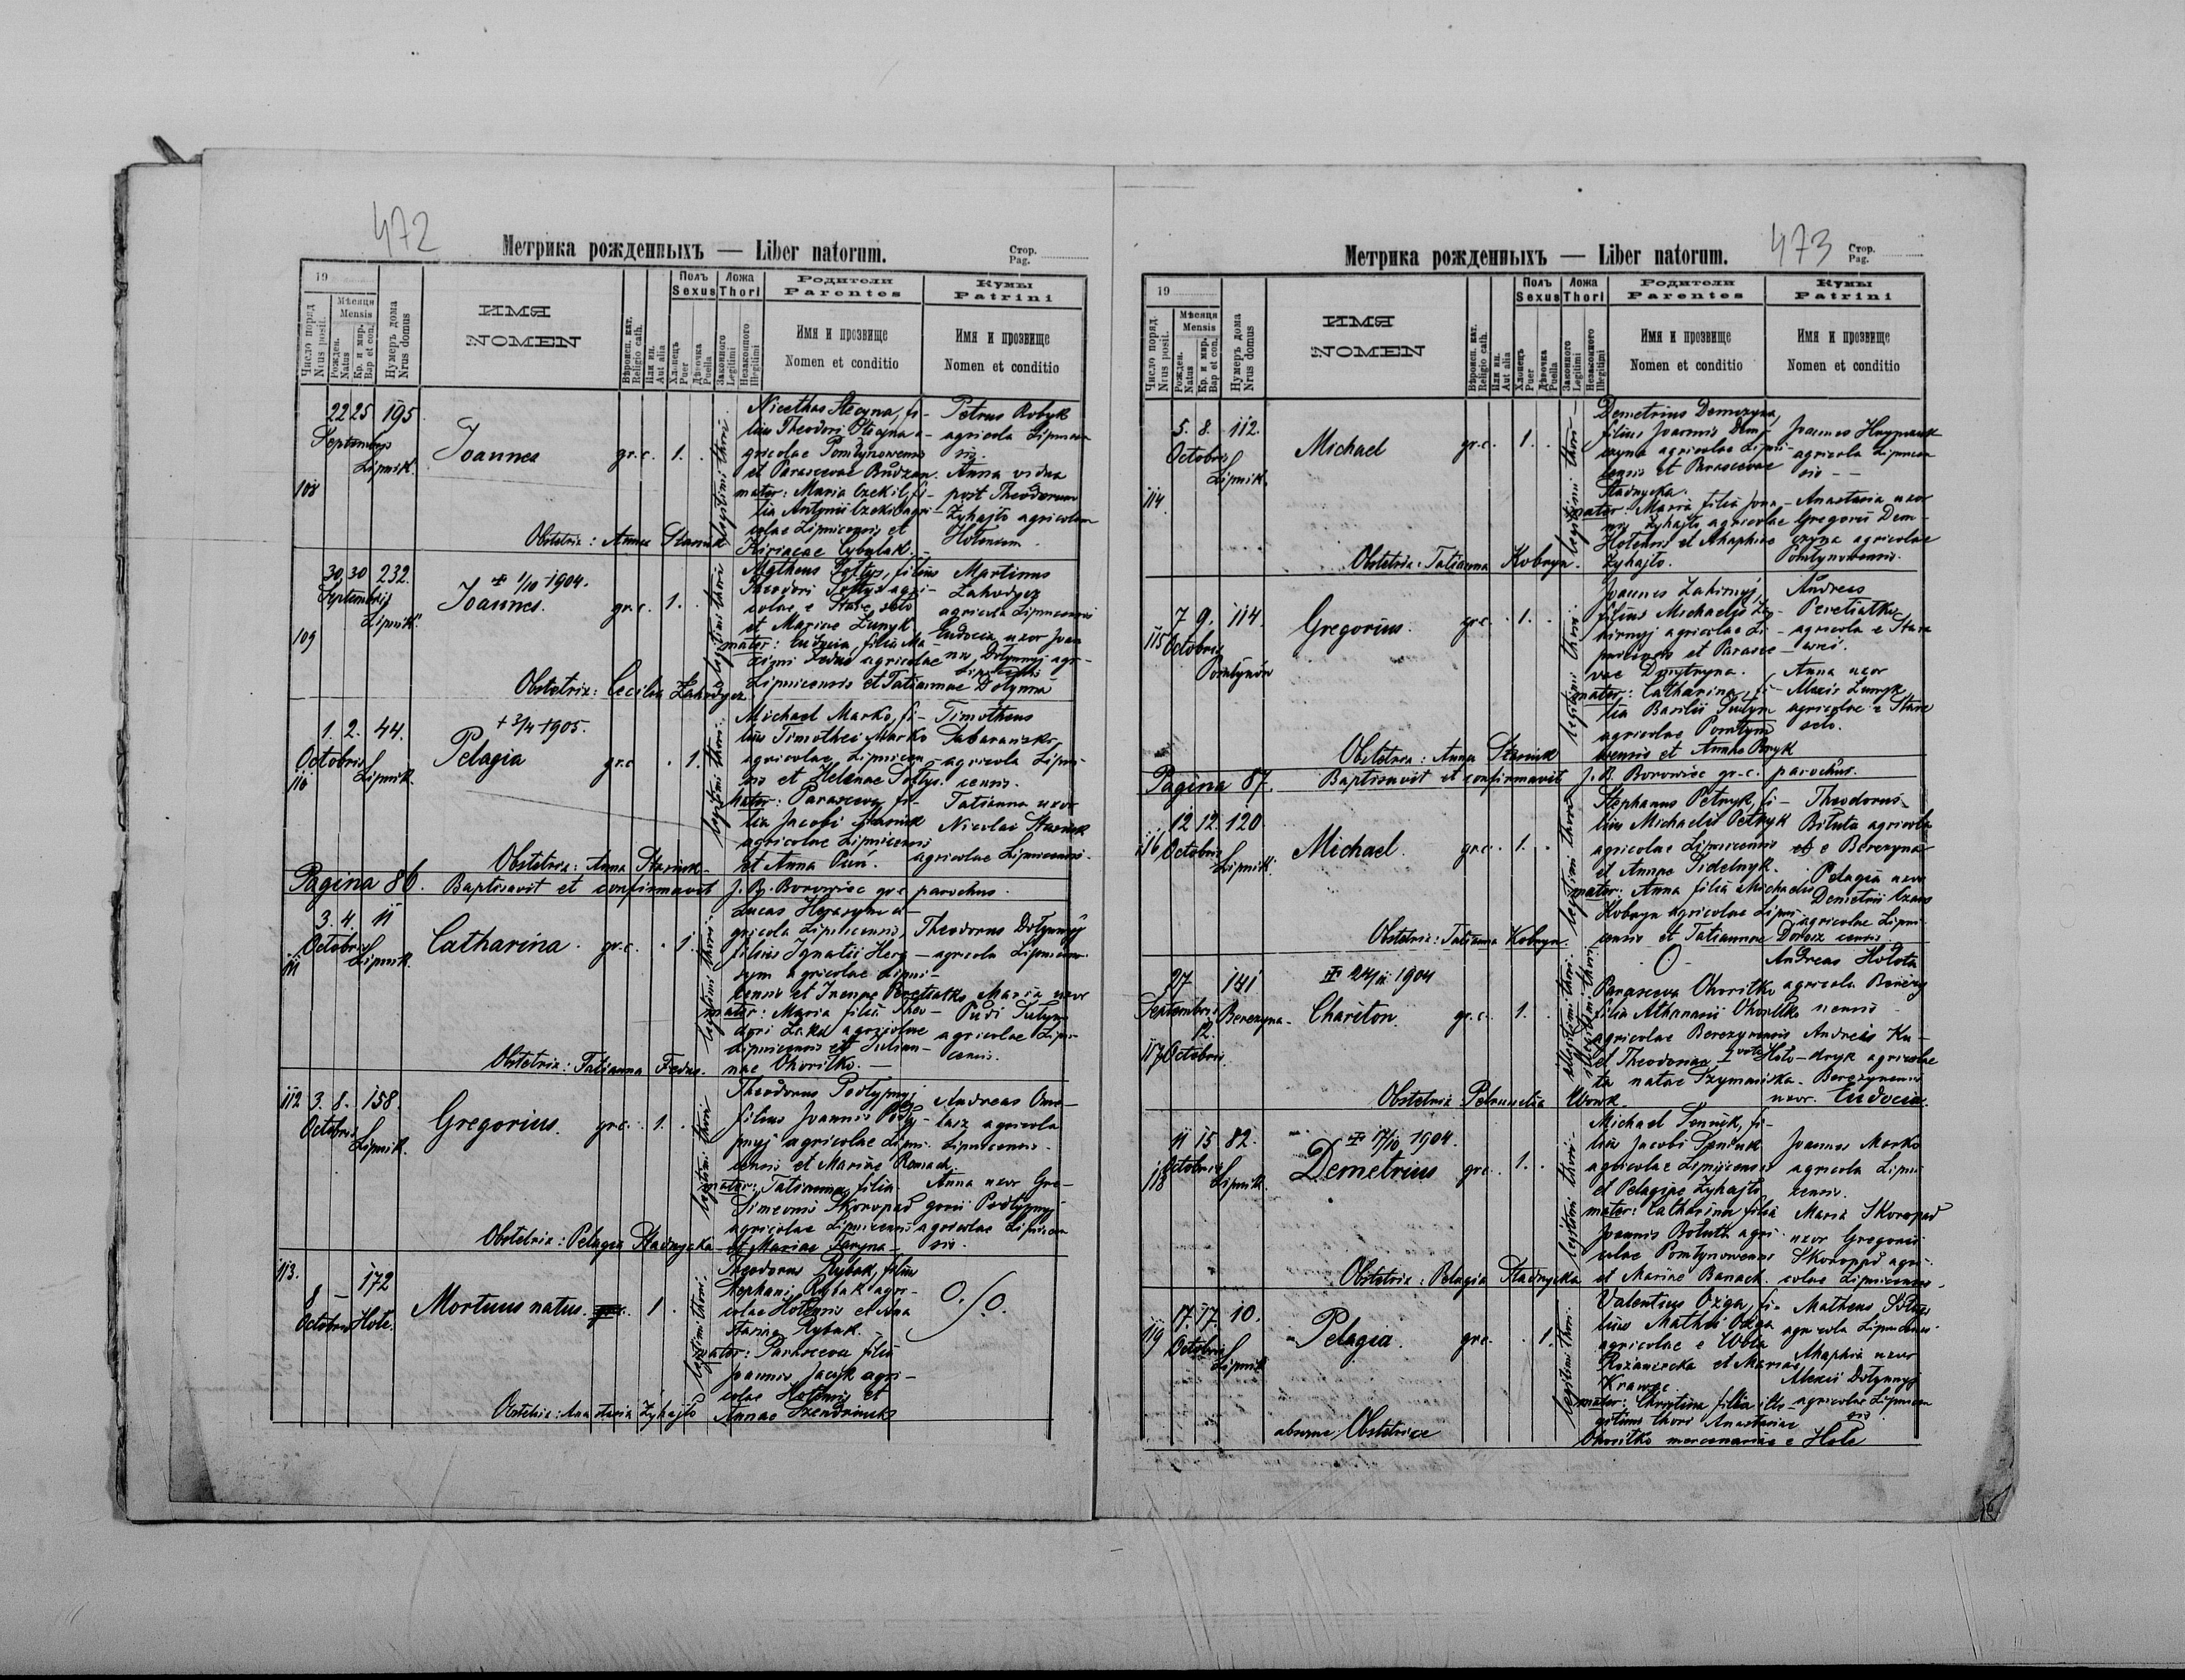 472
Метрика рожденныхъ — Liber natorum.
Стор.
Pag.
19
Число поряд.
Nrus posit.
Мѣсяця
Mensis
Рожден.
Natus
Кр. и мир.
Bap et con.
Нумеръ дома
Nrus domus
ИМЯ
NOMEN
Вѣроисп. кат.
Religio cath.
Или ин.
Aut alia
Полъ
Sexus
Хлопецъ
Puer
Дѣвочка
Puella
Ложа
Thori
Законного
Legitimi
Незаконного
Illegitimi
Родители
Parentes
Имя и прозвище
Nomen et conditio
Кумы
Patrini
Имя и прозвище
Nomen et conditio
108
22 25 195
Septembris
Lipnik.
Joannes
gr. c. 1.
legitimi thori
Nicethas Stecyna, fi-
lius Theodori Stecyna a-
gricolae Pomłynowensis
et Parascevae
mater: Maria Czekil, fi-
lia Antonii Czekil agri-
colae Lipnicensis et
Kiriacae Cybulak.
Petrus Kobyk
agricola Lipnicen
sis.
Anna vidua
post Theodorum
Żyhajło agricolam
Hotensem
Obstetrix: Anna Stasiuk
109
30 30 232.
Septembris
Lipnik.
+ 1/10 1904.
Joannes.
gr. c. 1.
legitimi thori
Matheus Sołtys, filius
Theodori Sołtys agri-
colae e Stare sioło
et Mariae Łunyk
mater: Eudocia, filia Ma-
ximi Fedus agricolae
Lipnicensis et Tatiannae Dołynna
Martinus
Zahodycz
agricola Lipnicensis
Eudocia uxor Joan
nis Dołynnyj agri-
Obstetrix: Cecilia Zahodycz
110
1. 2. 44.
Octobris
Lipnik.
+ 3/4 1905.
Pelagia
gr. c. 1.
legitimi thori
Michael Marko, fi-
lius Timothei Marko
agricolae Lipnicen
sis et Helenae Sołtys.
Mater: Parasceva fi-
lia Jacobi Stasiuk
agricolae Lipnicensis
et Anna
Timotheus
agricola Lipni-
censis.
Tatianna uxor
Nicolai Stasiuk
agricolae Lipnicensis.
Obstetrix: Anna Stasiuk
Pagina 86. Baptisavit et confirmavit J. B. Borowiec gr. c. parochus.
111
3. 4. 11
Octobris
Lipnik.
Catharina.
gr. c. 1.
legitimi thori
Lucas Herasym a-
gricola Lipnicensis,
filius Ignatii Hera-
sym agricolae Lipni-
censis et Irenae Peretiatko
mater: Maria filia Theo-
dori Łaka agricolae
Lipnicensis et Julian-
nae Choritko.
Theodorus Dołynnyj
agricola Lipnicen
Maria uxor
agricolae Lipni-
censis.
Obstetrix: Tatianna Fedus.
112
3. 8. 158.
Octobris
Lipnik.
Gregorius.
gr. c. 1.
legitimi thori
Theodorus Podłypnyj
filius Joannis Podły-
pnyj agricolae Lipni-
censis et Mariae Romach
mater: Tatianna filia
Simeonis Skoropad
agricolae Lipnicensis
et Mariae
Andreas
agricola
Lipnicensis.
Anna uxor Gre-
gorii Podłypnyj
agricolae Lipnicen
sis.
Obstetrix: Pelagia Stadnycka
113.
8 — 172
Octobris Hote.
Mortuus natus.
1.
legitimi thori
Theodorus Rybak, filius
Stephani Rybak agri-
colae Hotensis et Ana
stasiae Rybak.
mater: Parasceva filia
Joannis Jacyk agri-
colae Hotensis et
Annae
0./0.
Obstetrix: Anastasia Żyhajło
473
Метрика рожденныхъ — Liber natorum.
Стор.
Pag.
19
Число поряд.
Nrus posit.
Мѣсяця
Mensis
Рожден.
Natus
Кр. и мир.
Bap et con.
Нумеръ дома
Nrus domus
ИМЯ
NOMEN
Вѣроисп. кат.
Religio cath.
Или ин.
Aut alia
Полъ
Sexus
Хлопецъ
Puer
Дѣвочка
Puella
Ложа
Thori
Законного
Legitimi
Незаконного
Illegitimi
Родители
Parentes
Имя и прозвище
Nomen et conditio
Кумы
Patrini
Имя и прозвище
Nomen et conditio
114.
5. 8. 112.
Octobris
Lipnik.
Michael
gr. c. 1.
legitimi thori
Demetrius Demczyna,
filius Joannis Dem-
czyna agricolae Lipni-
censis et Parascevae
Stadnycka.
mater: Maria filia Joan-
nis Żyhajło agricolae
Hotensis et Ahaphiae
Żyhajło.
Joannes
agricola Lipnicen
sis —
Anastasia uxor
Gregorii Dem-
czyna agricolae
Pomłynowensis.
Obstetrix: Tatianna Kobryn.
115
7. 9. 114.
Octobris
Pomłynów
Gregorius.
gr. c. 1.
legitimi thori
Joannes Zakirnyj,
filius Michaelis Za-
kirnyj agricolae Li-
pnicensis et Parasce-
vae Dmytryna.
mater: Catharina, fi-
lia Basilii
agricolae Pomłyno
wensis et Annae
Andreas
Peretiatko
agricola e Stare
Anna uxor
Alexii Łunyk
agricolae e Stare
sioło.
Obstetrix: Anna Stasiuk
Pagina 87. Baptisavit et confirmavit J. B. Borowiec gr. c. parochus.
116
12 12. 120.
Octobris
Lipnik.
Michael.
gr. c. 1.
legitimi thori
Stephanus Petryk, fi-
lius Michaelis Petryk
agricolae Lipnicensis
et Annae Sidelnyk.
mater: Anna filia Michaelis
Kobryn agricolae Lipni-
censis et Tatiannae Dorosz
Theodorus
agricola
e Berezyna
Pelagia uxor
Demetrii
agricolae Lipni-
censis
Obstetrix: Tatianna Kobryn.
117
27 141
Septembris
12
Octobris
Berezyna.
+ 24/11 1904
Chariton.
gr. c. 1.
illegitimi thori
— O —
Parasceva Choritko
filia Athanasii Choritko
agricolae Berezynensis
et Theodosiae I voto Hoło-
ta natae Szymańska.
Andreas Hołota
agricola Berezy
nensis
Andreas Ku-
dryk agricolae
Berezynensis
uxor. Eudocia
Obstetrix Petronela Wowk.
118
11 15 82.
Octobris
Lipnik.
+ 17/10 1904.
Demetrius
gr. c. 1.
legitimi thori
Michael Seniuk, fi-
lius Jacobi Seniuk
agricolae Lipnicensis
et Pelagiae Żyhajło
mater: Catharina filia
Joannis Bołuta agri-
colae Pomłynowensis
et Mariae Banach.
Joannes Marko
agricola Lipni-
censis.
Maria Skoropad
uxor Gregorii
Skoropad agri-
colae Lipnicensis.
Obstetrix: Pelagia Stadnycka
119
17. 17. 10.
Octobris
Lipnik
Pelagia.
gr. c. 1.
legitimi thori.
Valentius Ożga, fi-
lius Mathei Ożga
agricolae e Wola
Rożaniecka et Mariae
Krawec.
mater: Christina filia ille-
gitimi thori Anastasiae
Choritko mercenariae e Hote
Matheus Sołtys
agricola Lipnicensis
Ahaphia uxor
Alexii Dołynnyj
agricolae Lipnicen
sis
absque Obstetrice